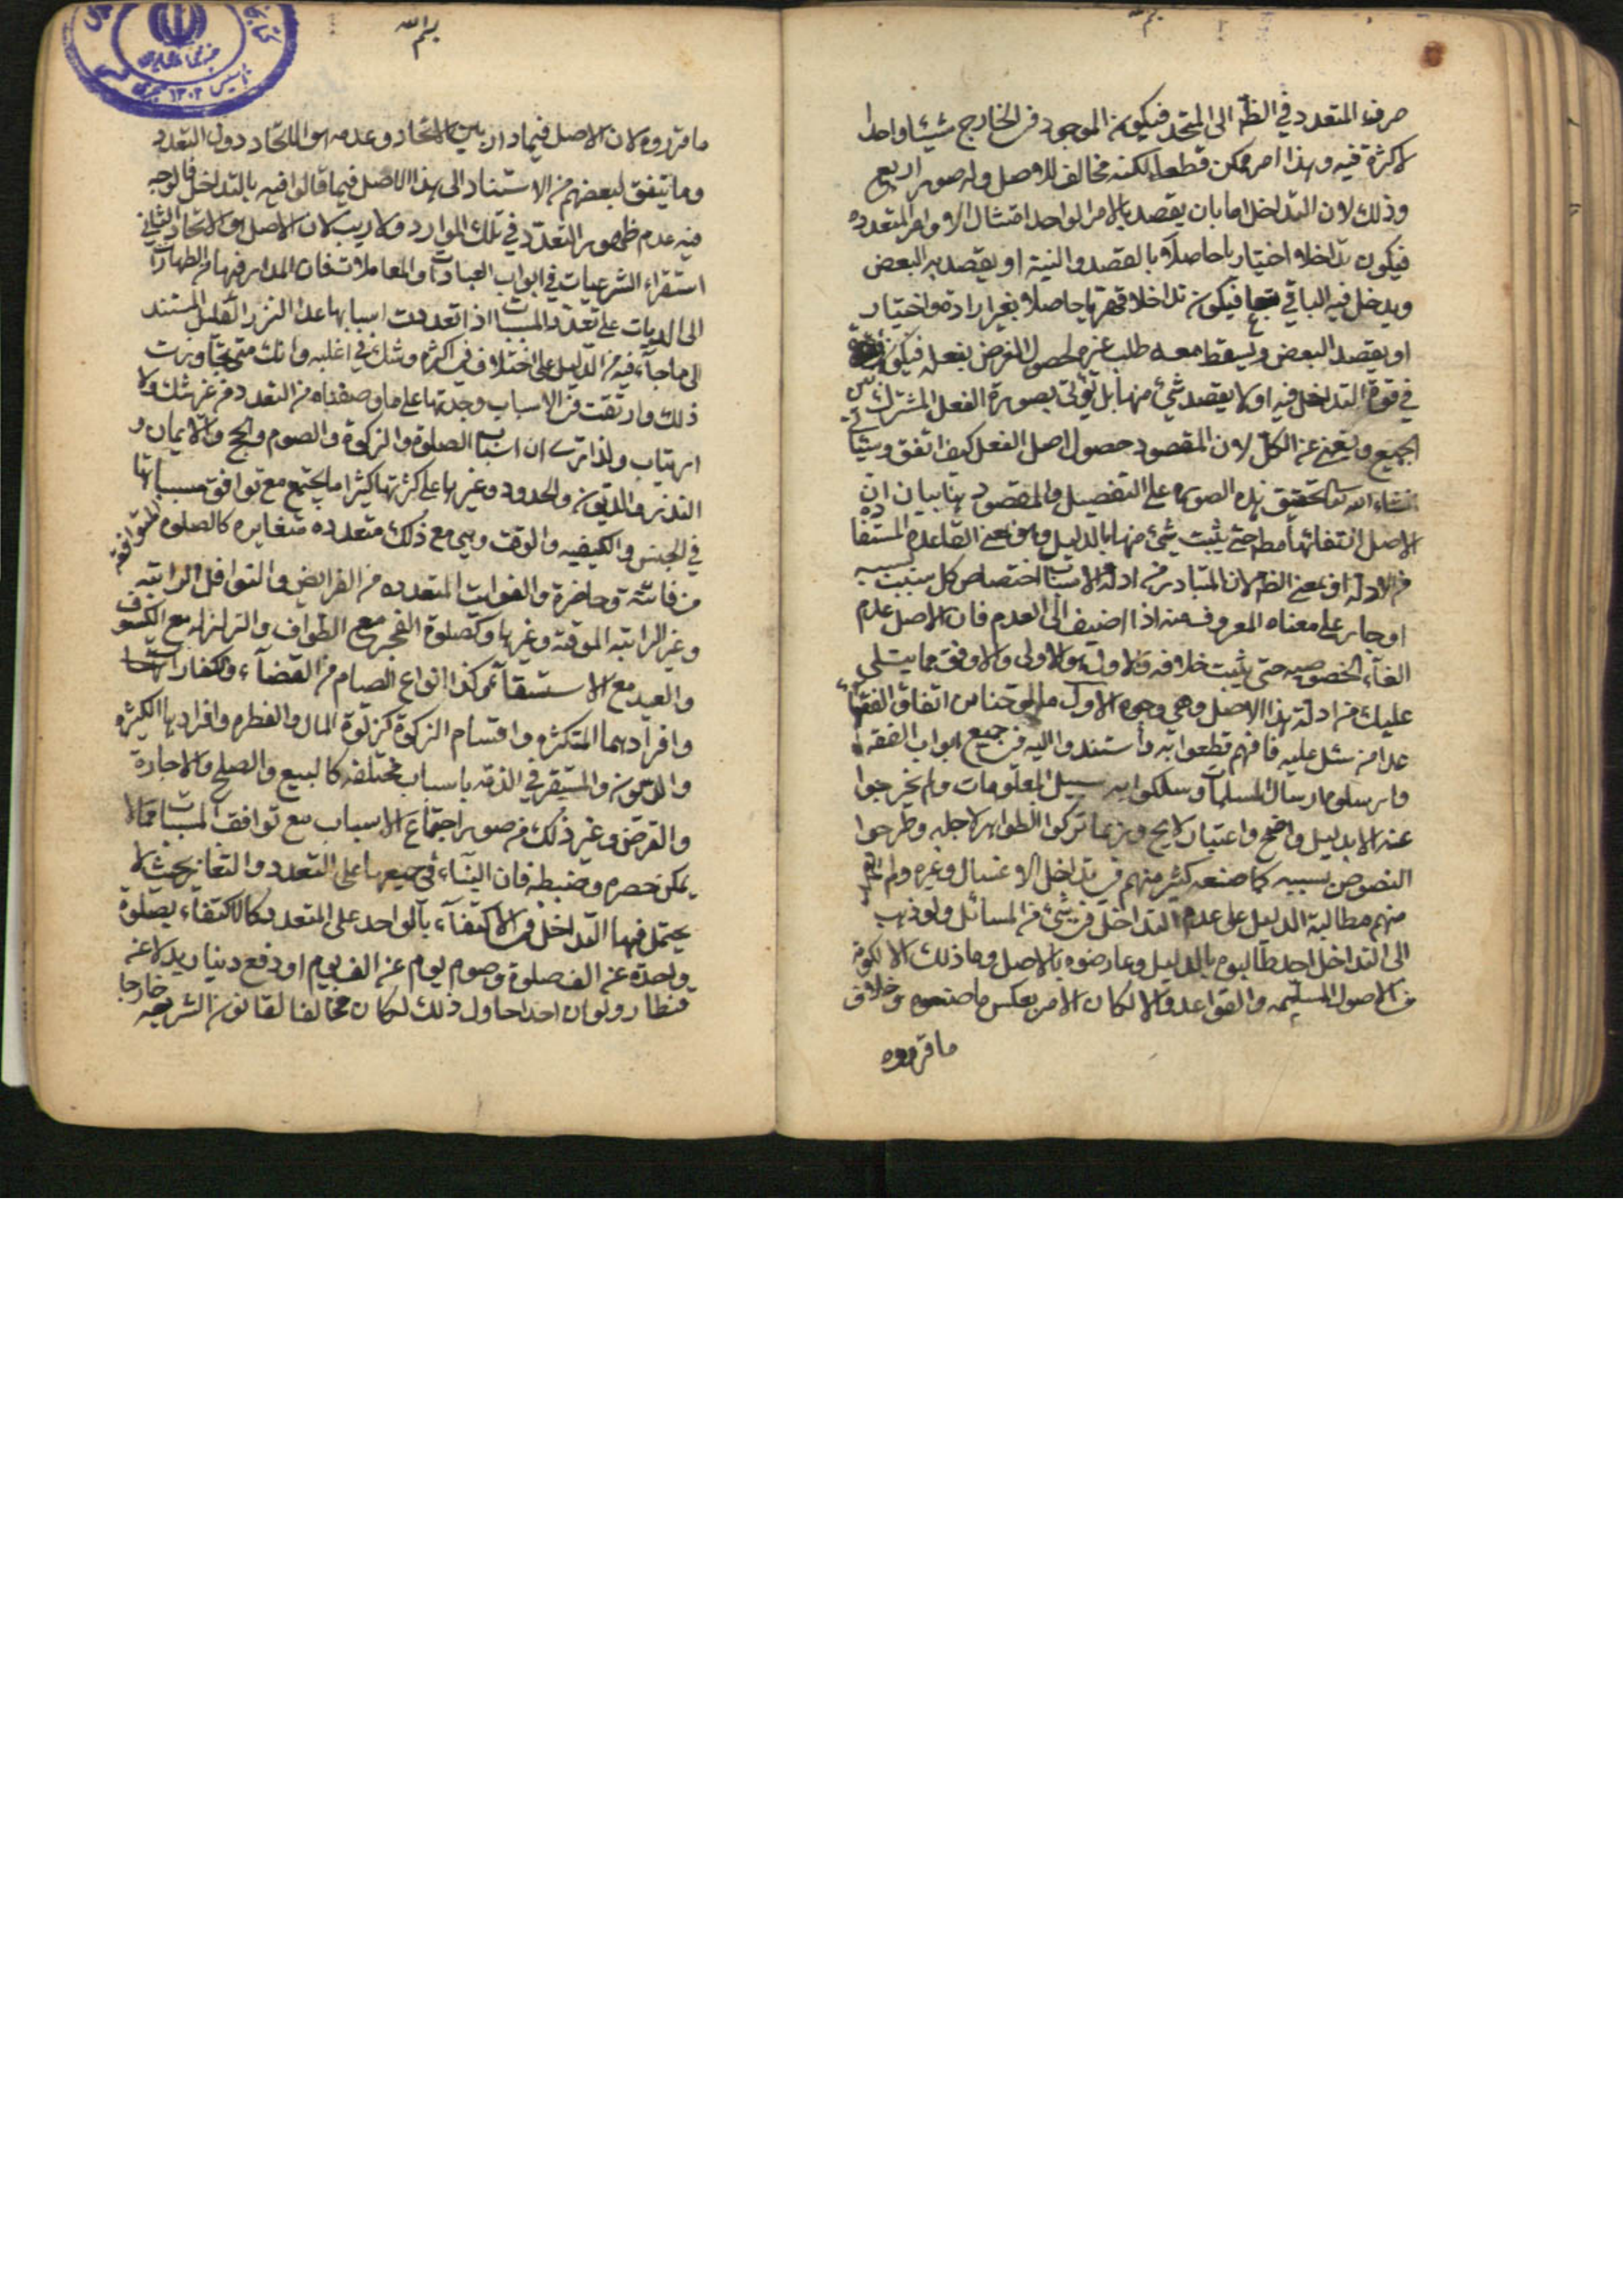 صرف المتعدد في الظ الى المتحد فيكون الموجود في الخارج شيئا واحدا
لا كثرة فيه وهذا امر ممكن قطعا لكنه مخالف للاصل وله صور اربع
وذلك لان التداخل اما بان يقصد بالامر الواحد امتثال الاوامر المتعدده
فيكون تداخلا اختياريا حاصلا بالقصد والنية او يقصد به البعض
ويدخل فيه الباقي تبعا فيكون تداخلا قهريا حاصلا بغير ارادة واختيار
او يقصد البعض ويسقط معه طلب غيره لحصول الغرض بفعله فيكون
في قوة التداخل فيه او لا يقصد شئ منها بل يؤتى بصورة الفعل المشترك بين
الجميع ويغني عن الكل لان المقصود حصول اصل الفعل كيف اتفق وسياتي
انشاء الله تحقيق هذه الصور على التفصيل والمقصود هنا بيان ان
الاصل انتفائها مط حتى يثبت شئ منها بالدليل وهو بمعنى القاعده المستفاده
من الادلة او بمعنى الظ لان المتبادر من ادلة الاسباب اختصاص كل سبب بمسببه
او جار على معناه المعروف منه اذا اضيف الى العدم فان الاصل عدم
الغاء الخصوصيه حتى يثبت خلافه والاول هو الاولى والاوفق مما يتلى
عليك من ادلة هذا الاصل وهي وجوه الاول اتفاق الفقهاء
عدا من شذ عليه فانهم قطعوا به واستندوا اليه في جميع ابواب الفقه
وارسلوه ارسال المسلمات وسلكوا به سبيل المعلومات ولم يخرجوا
عنه الا بدليل واضح واعتبار لايح وربما تركوا الظواهر لاجله وطرحوا
النصوص بسببه كما صنعه كثير منهم في تداخل الاغسال وغيره ولم
منهم مطالبة الدليل على عدم التداخل في شئ من المسائل ولو ذهب
الى التداخل احد طالبوه بالدليل وعارضوه بالاصل وما ذلك الا لكونه
من الاصول المسلمه والقواعد والا لكان الامر بعكس ما صنعوه وخلاف
ما قرروه
بسم الله
ما قرروه لان الاصل فيما دار بين الاتحاد وعدمه هو الاتحاد دون التعدد
وما يتفق لبعضهم من الاستناد الى هذا الاصل فيما قالوا فيه بالتداخل فالوجه
فيه عدم ظهور التعدد في تلك الموارد ولا ريب لان الاصل هو الاتحاد الثاني
استقراء الشرعيات في ابواب العبادات والمعاملات فان المدار فيها من الطهارات
الى الديات على تعدد المسببات اذا تعددت اسبابها عدا النزر القليل المستند
الى ما جاء فيه من الدليل على اختلاف في اكثره وشك في اغلبه وانك متى تجاوزت
ذلك وارتقت في الاسباب وجدتها على ما وصفناه من التعدد من غير شك ولا
ارتياب ولذا ترى ان اسباب الصلوة والزكوة والصوم والحج والايمان و
النذر والديون والحدود وغيرها على كثرتها كثيرا ما يجتمع مع توافق مسبباتها
في الجنس والكيفيه والوقت وهي مع ذلك متعدده متغايره كالصلوه المتوافقه
من فائتة وحاضرة والفوات المتعدده من الفرايض والنوافل الراتبه
وغير الراتبه الموقته وغيرها وكصلوة الفجر مع الطواف والزلزله مع الكسوف
والعيد مع الاستسقاء وكذا انواع الصيام من القضاء والكفارات
وافرادهما المتكثره واقسام الزكوة كزكوة المال والفطره وافرادها الكثيره
والديون والمستقر في الذمه باسباب مختلفه كالبيع والصلح والاجارة
والقرض وغير ذلك من صور اجتماع الاسباب مع توافق المسببات مما لا
يمكن حصره وضبطه فان البناء في جميعها على التعدد والتغاير بحيث لا
يحتمل فيها التداخل والاكتفاء بالواحد على المتعدد كالاكتفاء بصلوة
واحدة عن الف صلوة وصوم يوم عن الف يوم او دفع دينار بدلا عن
قنطار ولو ان احدا حاول ذلك لكان مخالفا لقانون الشريعه خارجا